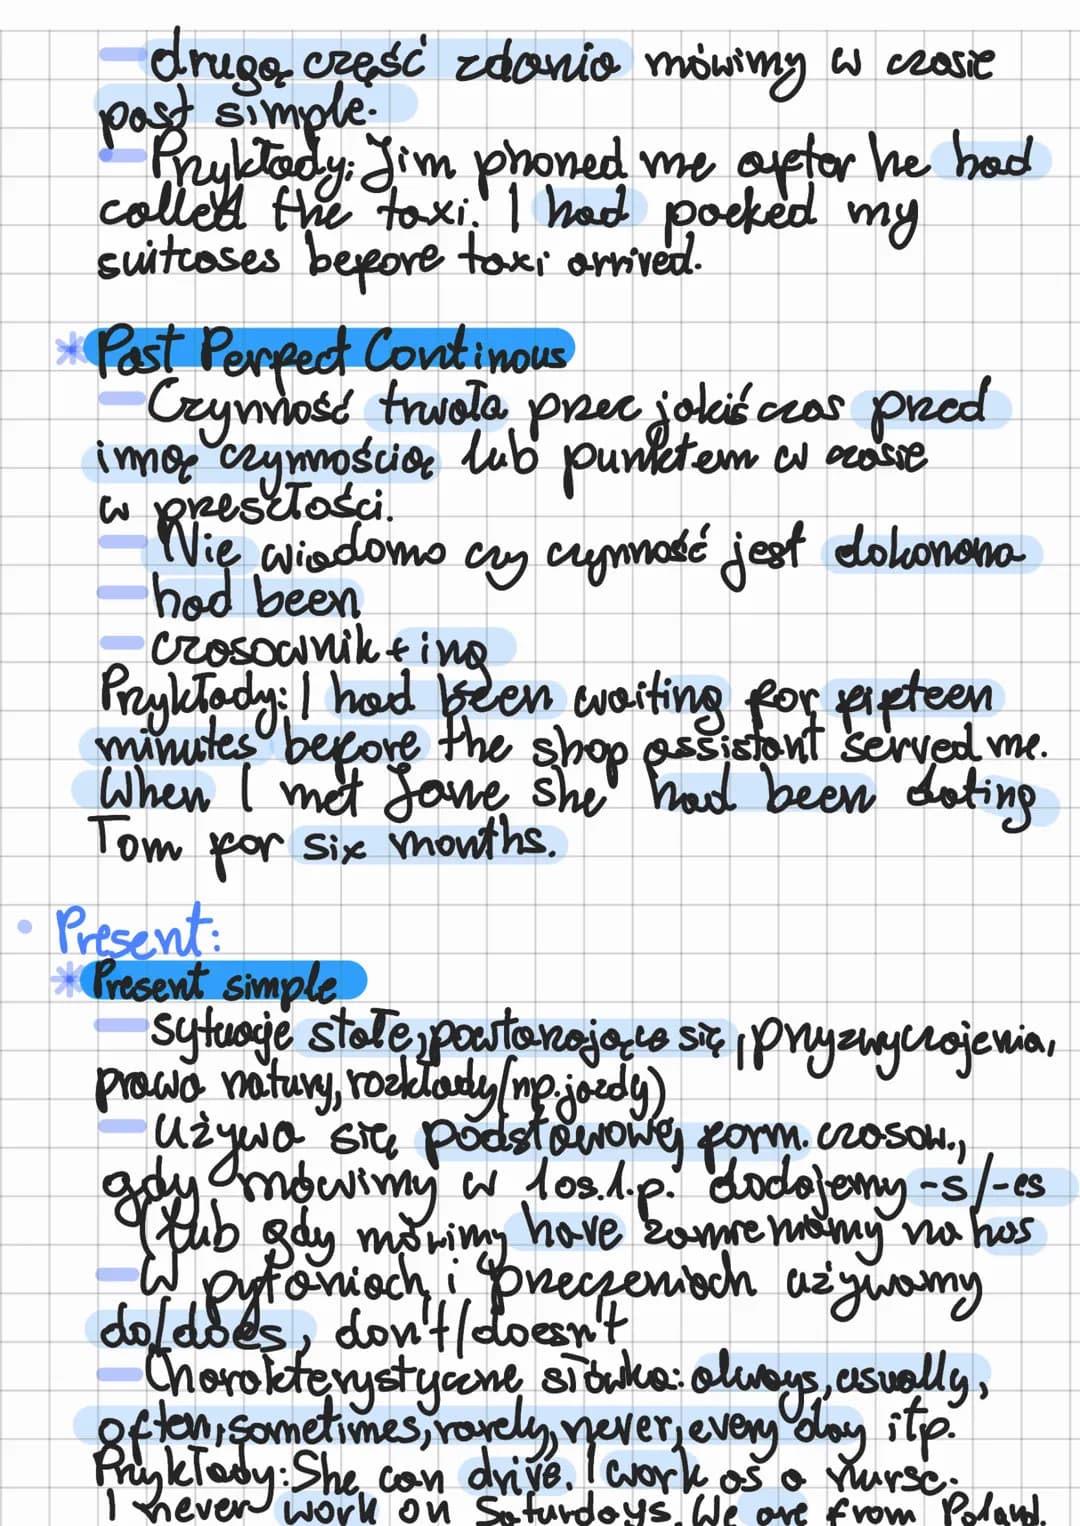 drugą część zdania mówimy w czasie
past simple.
Przykłady: Jim phoned me after he had
called the taxi. I had packed my
suitcases before taxi arrived.
Past Perfect Continous
Czynność trwała przez jakiś czas przed
inną czynnością lub punktem w czasie
w przeszłości.
Nie wiadomo czy czynność jest dokonana
had been
czasownik + ing
Przykłady: I had been waiting for fifteen
minutes before the shop assistant served me.
When I met Jane she had been dating
Tom for six months.
Present:
Present simple
Sytuacje stałe, powtarzające się, przyzwyczajenia,
prawa natury, rozkłady (np. jazdy)
Używa się podstawowej form. czasow.,
gdy mówimy w 1 os.l.p. dodajemy -s/-es
(lub gdy mówimy have zamieniamy na has
W pytaniach i przeczeniach używamy
do/does, don't/doesn't
Charakterystyczne słówka: always, usually,
often, sometimes, rarely, never, every day itp.
Przykłady: She can drive. I work as a nurse.
I never work on Saturdays. We are from Poland.